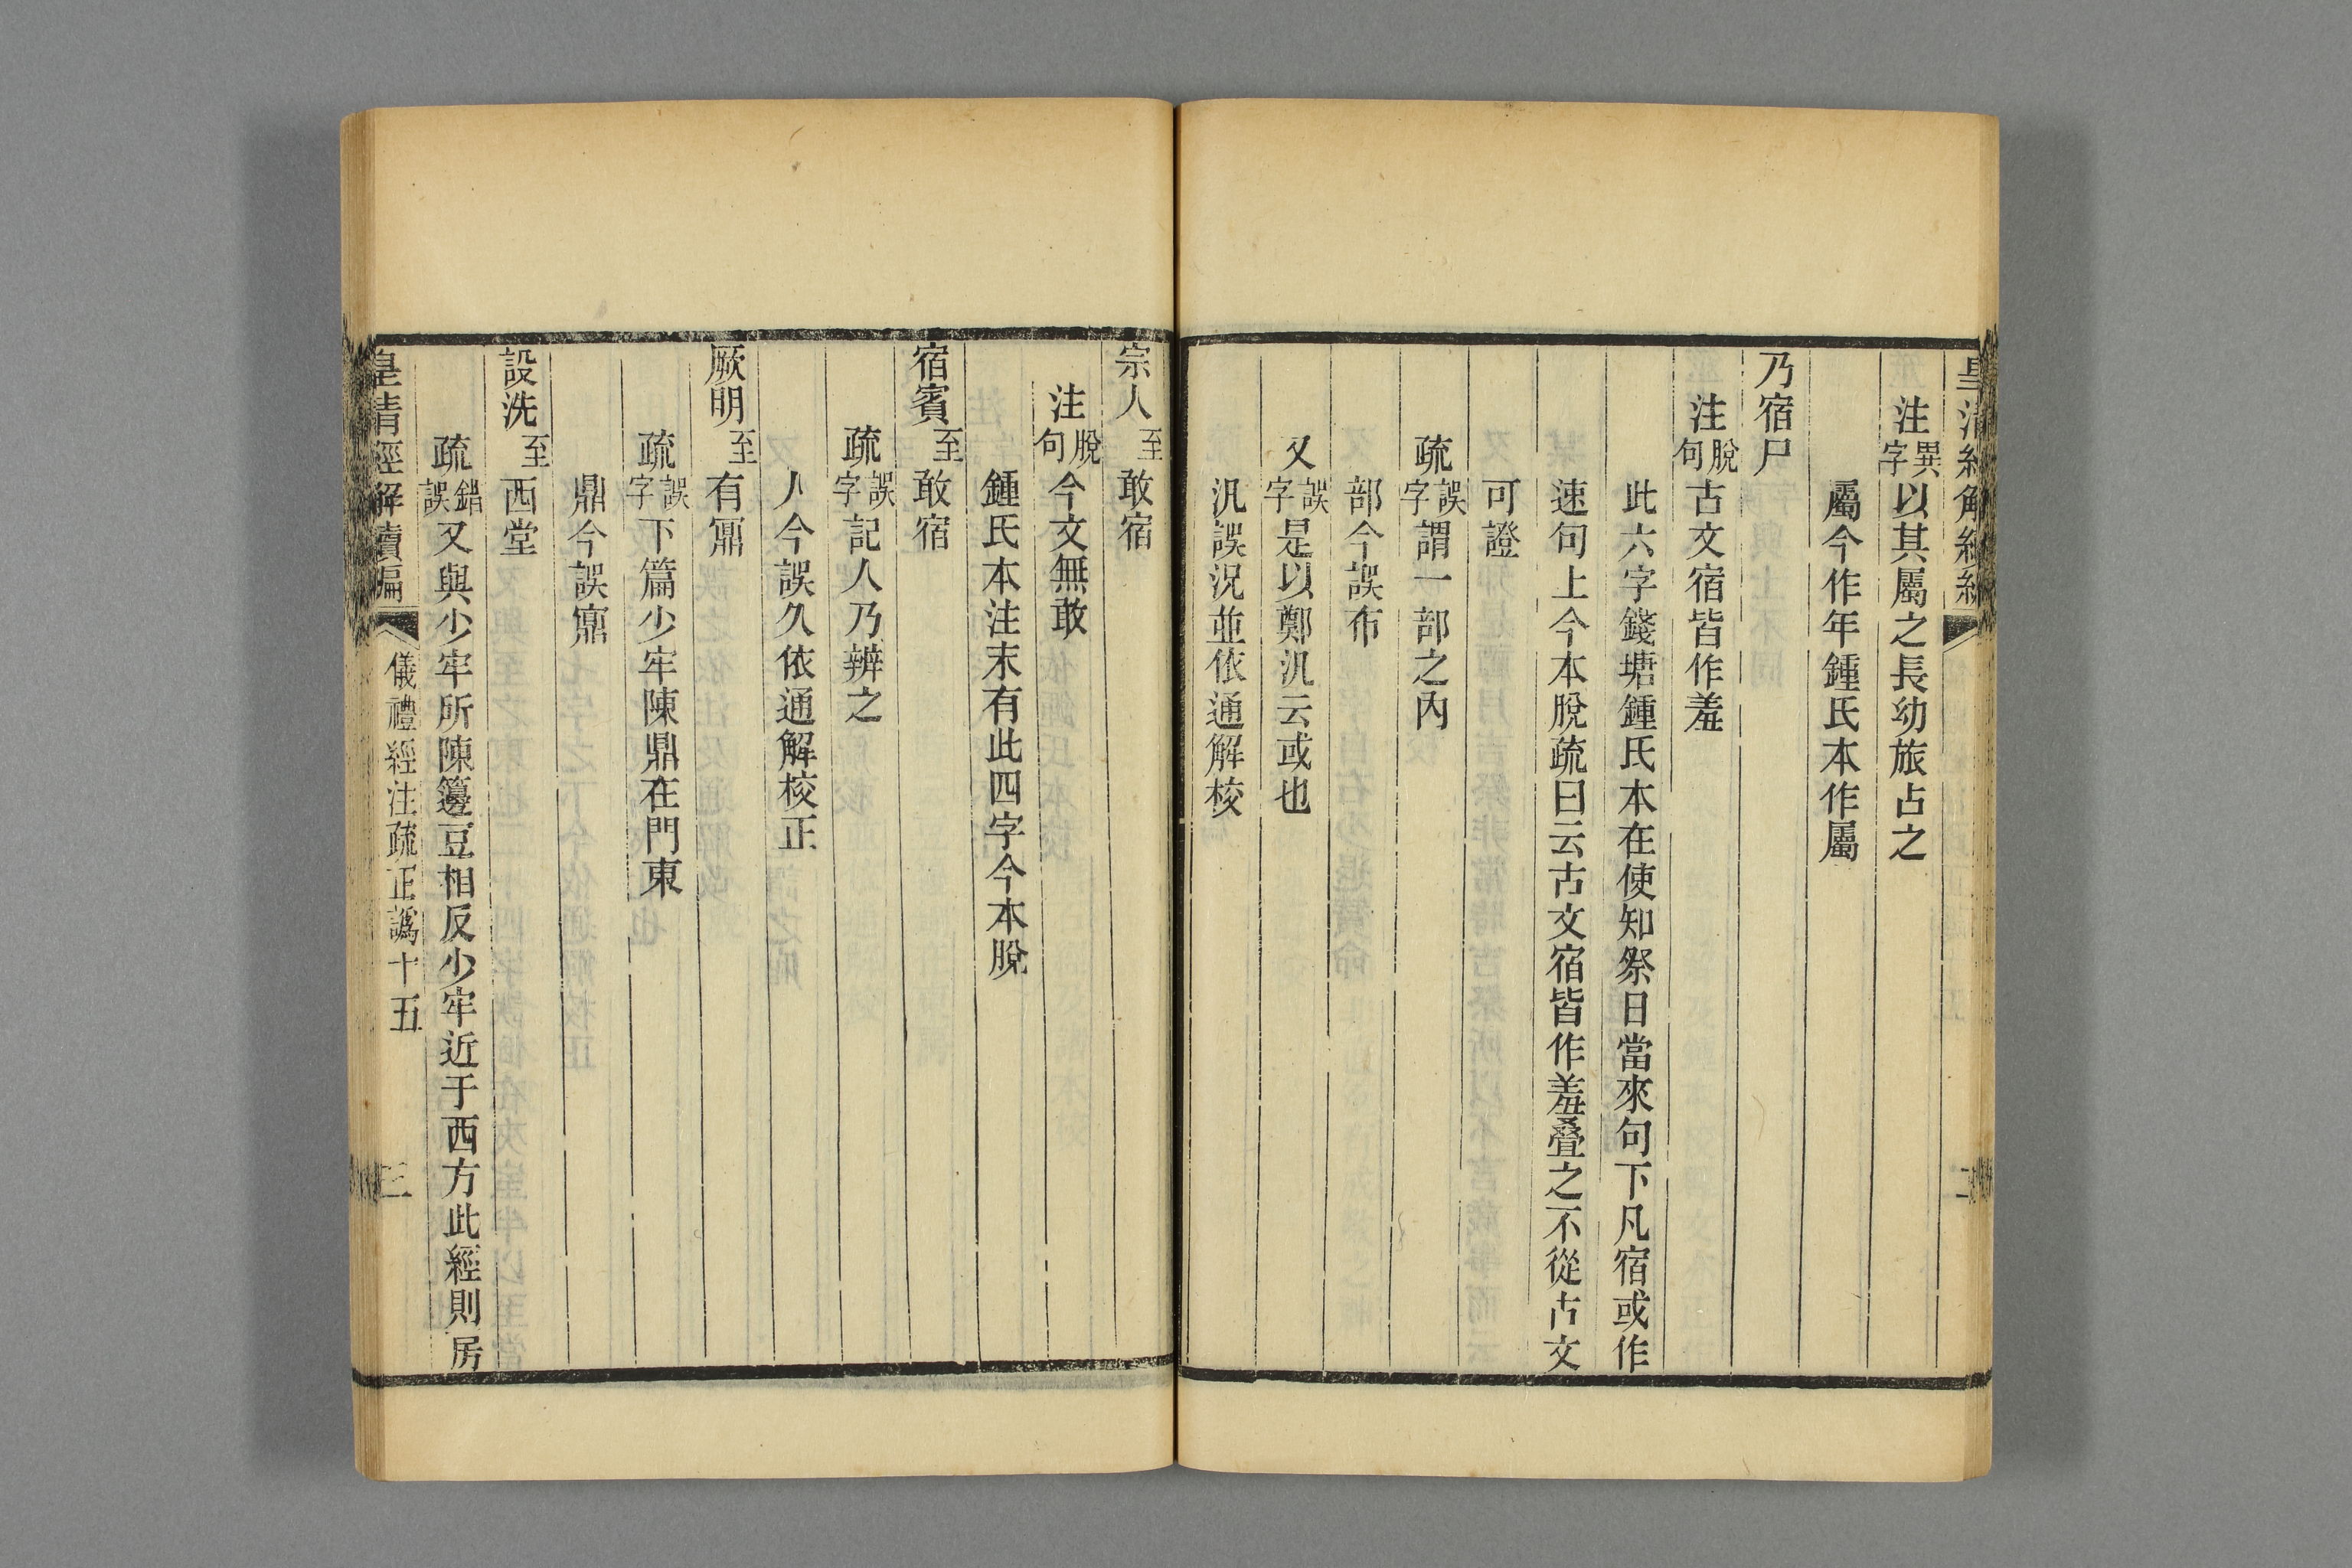 皇清經解續編
注異字以其屬之長幼旅占之
屬今作年鍾氏本作屬
乃宿尸
注脫句古文宿皆作羞
此六字錢塘鍾氏本在使知祭日當來句下凡宿或作
速句上今本脫疏曰云古文宿皆作羞疊之不從古文
可證
疏誤字謂一部之內
部今誤布
又誤字是以鄭汎云或也
汎誤況並依通解校
宗人至敢宿
注脫句今文無敢
鍾氏本注末有此四字今本脫
宿賓至敢宿
疏誤字記人乃辨之
人今誤久依通解校正
厥明至有鼏
疏誤字下篇少牢陳鼎在門東
鼎今誤鼏
設洗至西堂
疏錯誤又與少牢所陳籩豆相反少牢近于西方此經則房
皇清經解續編 儀禮經注疏正譌十五 三